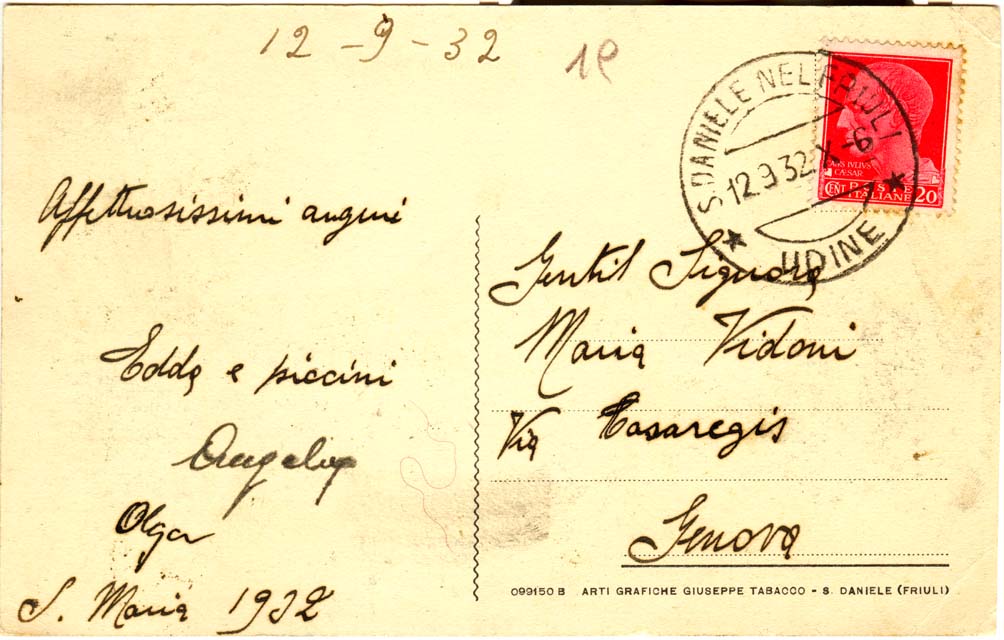 12-9-32
19
S. DANIELE NEL FRIULI
12.9.32.X-6
UDINE
CAIUS IVLIVS
CÆSAR
CENT. POSTE ITALIANE 20
Affettuosissimi auguri
Edda e piccini
Angelo
Olga
S. Maria 1932
Gentil Signora
Maria Vidoni
Via Casaregis
Genova
099150 B ARTI GRAFICHE GIUSEPPE TABACCO - S. DANIELE (FRIULI)